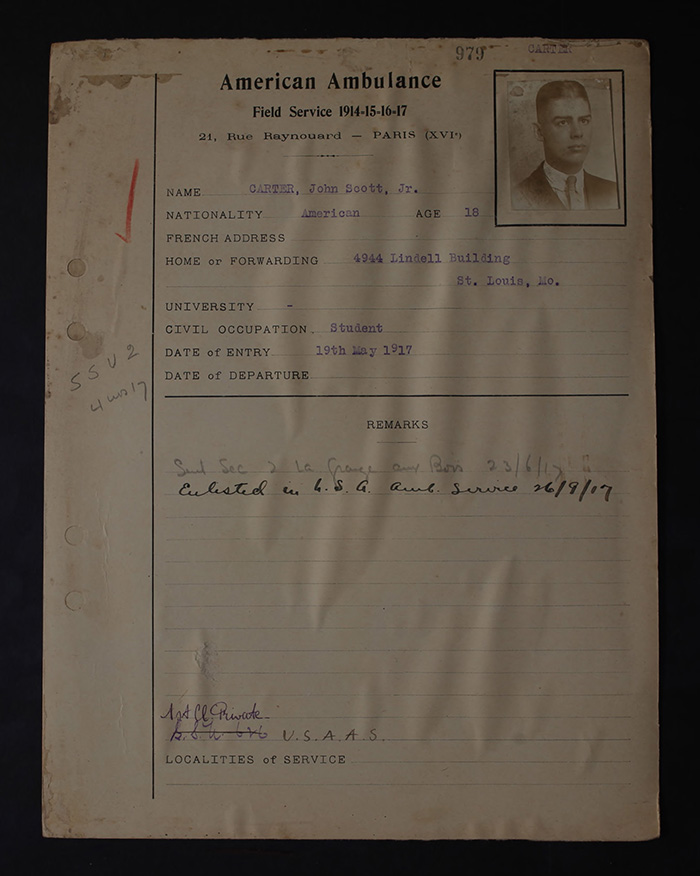 979 CARTER
American Ambulance
Field Service 1914-15-16-17
21, Rue Raynouard — PARIS (XVIe)
NAME CARTER, John Scott, Jr.
NATIONALITY American AGE 18
FRENCH ADDRESS
HOME or FORWARDING 4944 Lindell Building
St. Louis, Mo.
UNIVERSITY -
CIVIL OCCUPATION. Student
DATE of ENTRY 19th May 1917
DATE of DEPARTURE
SSU 2
REMARKS
Sent Sec 2 La Grange aux Bois 23/6/17
Enlisted in U.S.A. Amb. Service 26/9/17
1st Cl Private
S.S.U. 626 U.S.A.A.S.
LOCALITIES of SERVICE